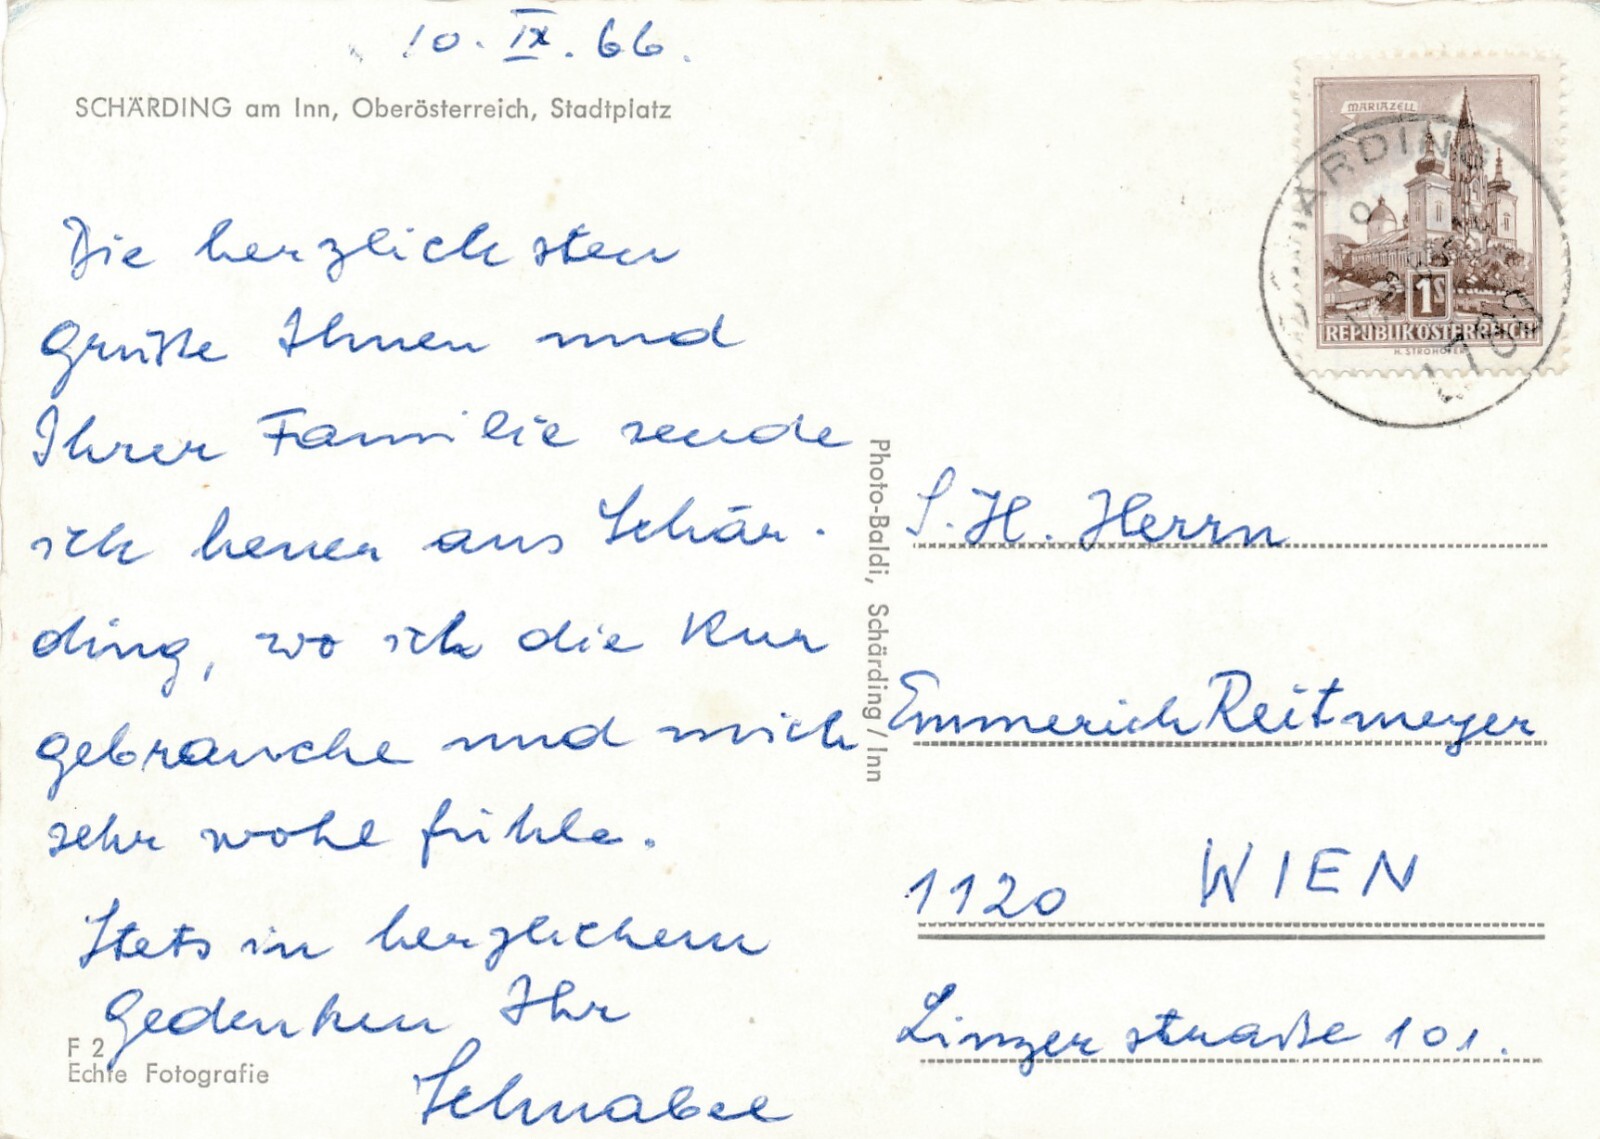 10. IX. 66.
SCHÄRDING am Inn, Oberösterreich, Stadtplatz
Die herzlichsten
Grüße Ihnen und
Ihrer Familie sende
ich heuer aus Schär-
ding, wo ich die Kur
gebrauche und mich
sehr wohl fühle.
Stets in herzlichem
Gedenken Ihr
Schnabel
F 2
Echte Fotografie
Photo-Baldi, Schärding/Inn
MARIAZELL
1S
REPUBLIK ÖSTERREICH
H. STROHOFER
SCHÄRDING
S. H. Herrn
Emmerich Reitmeyer
1120 WIEN
Linzerstraße 101.